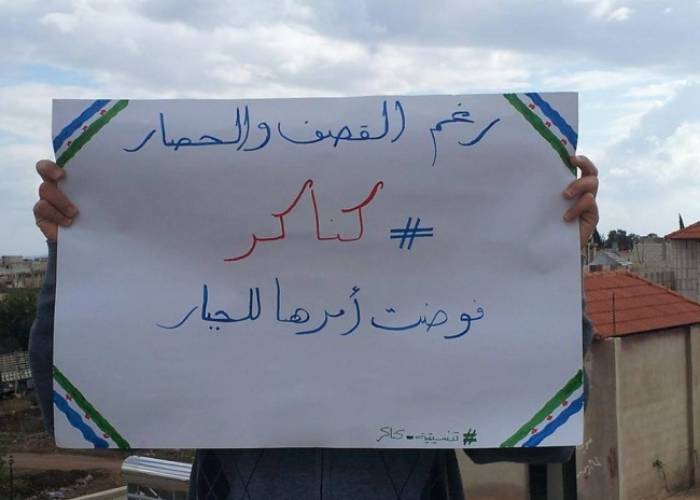 رغم القصف والحصار
# كناكر
فوضت أمرها للجبار
#تنسيقية-كناكر